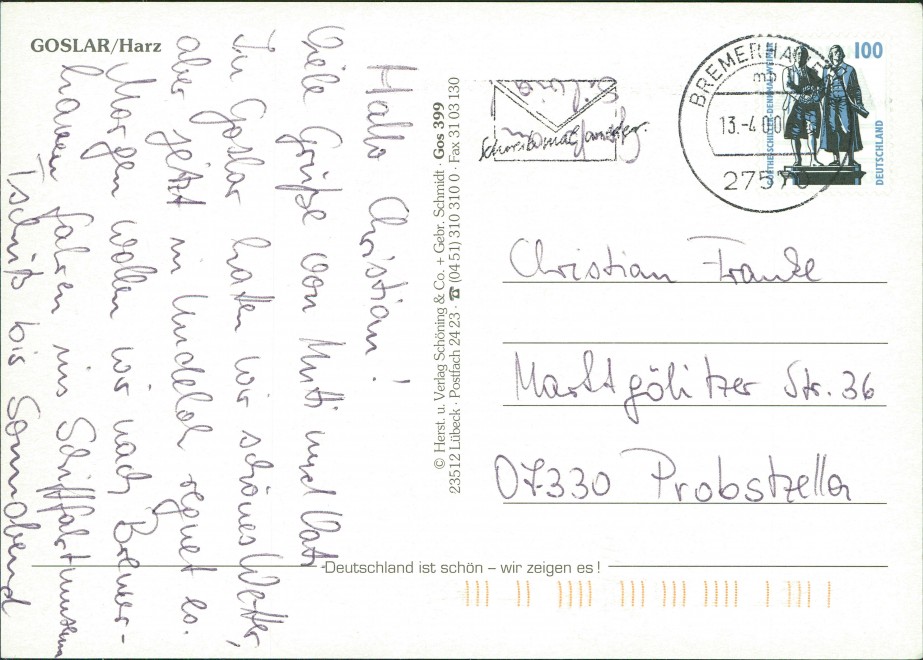 GOSLAR/Harz
Hallo Christian!
Viele Grüße von Mutti und Vati
In Goslar hatten wir schönes Wetter,
aber jetzt in regnet es.
Morgen wollen wir nach Bremer-
haven fahren ins Schiffahrtmuseum
Tschüß bis Sonnabend
Silvia
© Herst. u. Verlag Schöning & Co. + Gebr. Schmidt · Gos 399
23512 Lübeck · Postfach 24 23 · ☎ (04 51) 310 310 0 · Fax 31 03 130
Schreib mal
BREMERHAVEN
mb
13.-4.00
27570
100
GOETHE-SCHILLER-DENKMAL WEIMAR
DEUTSCHLAND
Christian Franke
Marktgölitzer Str. 36
07330 Probstzella
Deutschland ist schön – wir zeigen es!